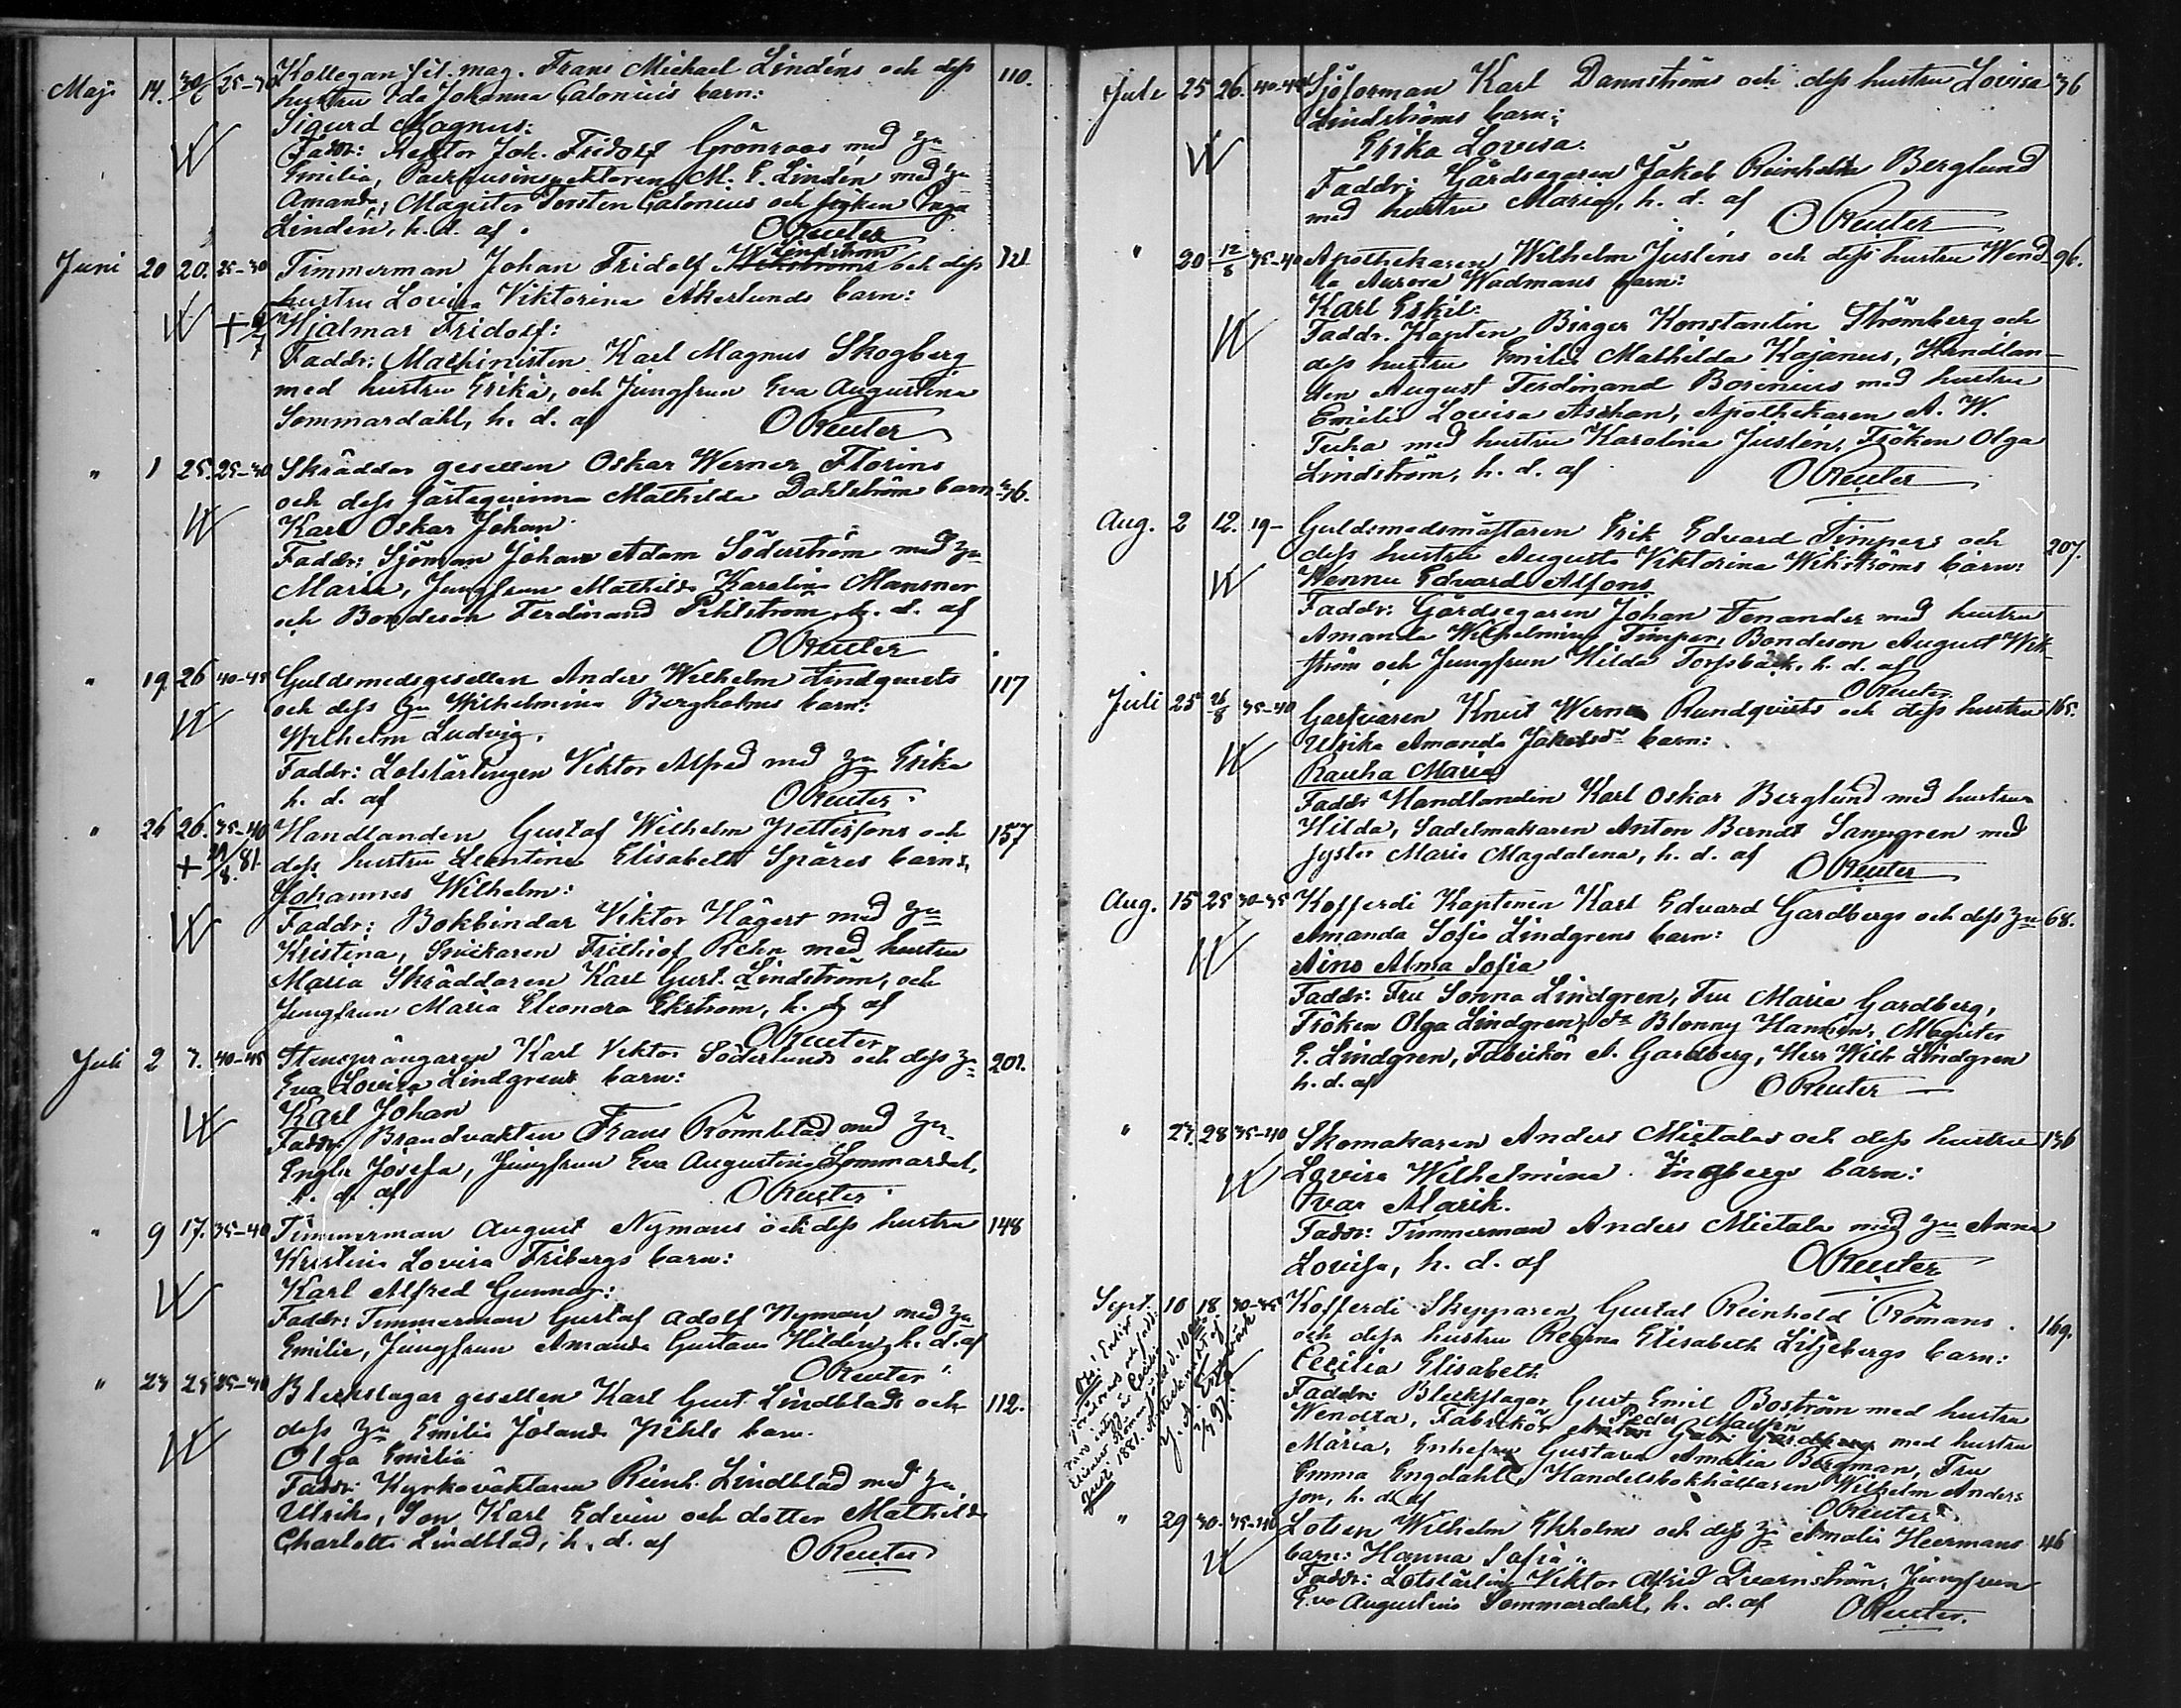 Maj 14. 30/6 25-30 Kollegan fil. mag. Frans Michael Lindéns och dess 110.
hustru Ida Johanna Calonius barn:
Sigurd Magnus:
Faddr: Rektor Joh. Fridolf Grönroos med hu
Emilia, M. E. Lindén med hu
Amanda, Magister Torsten Calonius och fröken Inga
Lindén, h. d. af
OReuter
Juni 20 20. 25-30 Timmerman Johan Fridolf Lindström och dess 121
hustru Lovisa Viktorina Åkerlunds barn:
Hjalmar Fridolf:
Faddr: Maschinisten Karl Magnus Skogberg
med hustru Erika, och Jungfrun Eva Augustina
Sommardahl, h. d. af OReuter
" 1 25. 25-30 Skräddar gesellen Oskar Werner Florins
och dess fästeqvinna Mathilda Dahlströms barn 236.
Karl Oskar Johan
Faddr: Sjöman Johan Adam Söderström med hu
Maria, Jungfrun Mathilda Karolina Mansner
och Bondeson Ferdinand Pihlström, h. d. af
OReuter
" 19. 26 40-45 Guldsmedsgesellen Anders Wilhelm Lindqvists 117
och dess hu Wilhelmina Bergholms barn:
Wilhelm Ludvig.
Faddr: Lotslärlingen Viktor Alfred med hu Erika
h. d. af OReuter
" 26 26. 35-40 Handlanden Gustaf Wilhelm Petterssons och 157
+ 29/8. 81. dess hustru Leontina Elisabeth Spåres barn:
Johannes Wilhelm:
Faddr: Bokbindar Viktor Hägert med hu
Kristina, Snickaren Frithiof Rehn med hustru
Maria Skräddaren Karl Gust. Lindström, och
Jungfrun Maria Eleonora Ekström, h. d. af
OReuter
Juli 2 7. 40-45 Stensprängaren Karl Viktor Söderlunds och dess hu 201.
Eva Lovisa Lindgrens barn:
Karl Johan
Faddr: Brandvakten Frans Rönnblad med hu
Engla Josefa, Jungfrun Eva Augustina Sommardal,
h. d. af OReuter
" 9 17. 35-40 Timmerman August Nymans och dess hustru 148
Kristina Lovisa Fribergs barn:
Karl Alfred Gunnar:
Faddr: Timmerman Gustaf Adolf Nyman med hu
Emilia, Jungfrun Amanda Gustava Hildén, h. d. af
OReuter
" 23 25 25-30 Bleckslagar gesellen Karl Gust. Lindblads och 112.
dess hu Emilia Jolanda Pihls barn.
Olga Emilia
Faddr: Kyrkovaktaren Reinh. Lindblad med hu
Ulrika, Son Karl Edvin och dotter Mathilda
Charlotta Lindblad, h. d. af OReuter
Juli 25 26. 40-45 Sjöforman Karl Dannströms och dess hustru Lovisa 36
Lindströms barn:
Erika Lovisa.
Faddr: Gårdsegaren Jakob Reinhold Berglund
med hustru Maria, h. d. af
OReuter
" 20 12/8 35-40 Apothekaren Wilhelm Jusléns och dess hustru Wend- 96.
la Aurora Wadmans barn:
Karl Eskil.
Faddr. Kapten Birger Konstantin Strömberg och
dess hustru Emilia Mathilda Kajanus, Handlan-
den August Ferdinand Borenius med hustru
Emilia Lovisa Aschan, Apothekaren A. W.
med hustru Karolina Juslén, Fröken Olga
Lindström, h. d. af OReuter
Aug. 2 12. 19- Guldsmedsmästaren Erik Edvard Timpers och 207.
dess hustru Augusta Viktorina Wikströms barn:
Wennu Edvard Alfons
Faddr: Gårdsegaren Johan Fenander med hustru
Amanda Wilhelmina Timper, Bondeson August Wik-
ström och Jungfrun Hilda Torfsbäck, h. d. af
OReuter
Juli 25 26/8 35-40 Garfvaren Knut Werner Rundqvists och dess hustru 165.
Ulrika Amanda Jakobsdr barn:
Rauha Maria
Faddr Handlanden Karl Oskar Berglund med hustru
Hilda, Sadelmakaren Anton Berndt Sanngren med
syster Maria Magdalena, h. d. af OReuter
Aug. 15 25 30-35 Kofferdi Kaptenen Karl Edvard Gardbergs och dess hu 68.
Amanda Sofia Lindgrens barn:
Aino Alma Sofia
Faddr: Fru Sonna Lindgren, Fru Maria Gardberg,
Fröken Olga Lindgren, do Blonny Hansén, Magister
E. Lindgren, Fabrikör A. Gardberg, Herr Wilh Lindgren
h. d. af OReuter
" 27. 28 35-40 Skomakaren Anders Mietalas och dess hustru 136
Lovisa Wilhelmina Ingbergs barn:
Ivar Alarik.
Faddr: Timmerman Anders Mietala med hu Anna
Lovisa, h. d. af OReuter
Sept. 10 18 30-35 Kofferdi Skepparen Gustaf Reinhold Römans 169.
och dess hustru Regina Elisabeth Liljebergs barn:
Cecilia Elisabeth
Faddr: Bleckslagar Gust Emil Boström med hustru
Wendla, Fabrikör Peder Madsen med hustru
Maria, Enkefru Gustava Amalia Bergman, Fru
Emma Engdahl, Handelsbokhållaren Wilhelm Anders
son, h. d. af OReuter
" 29 30. 35-40 Lotsen Wilhelm Ekholms och dess hu Amalia Heermans 46
barn: Hanna Sofia.
Faddr: Lotslärling Viktor Alfrid Qvarnström, Jungfrun
Eva Augustina Sommardahl, h. d. af OReuter.